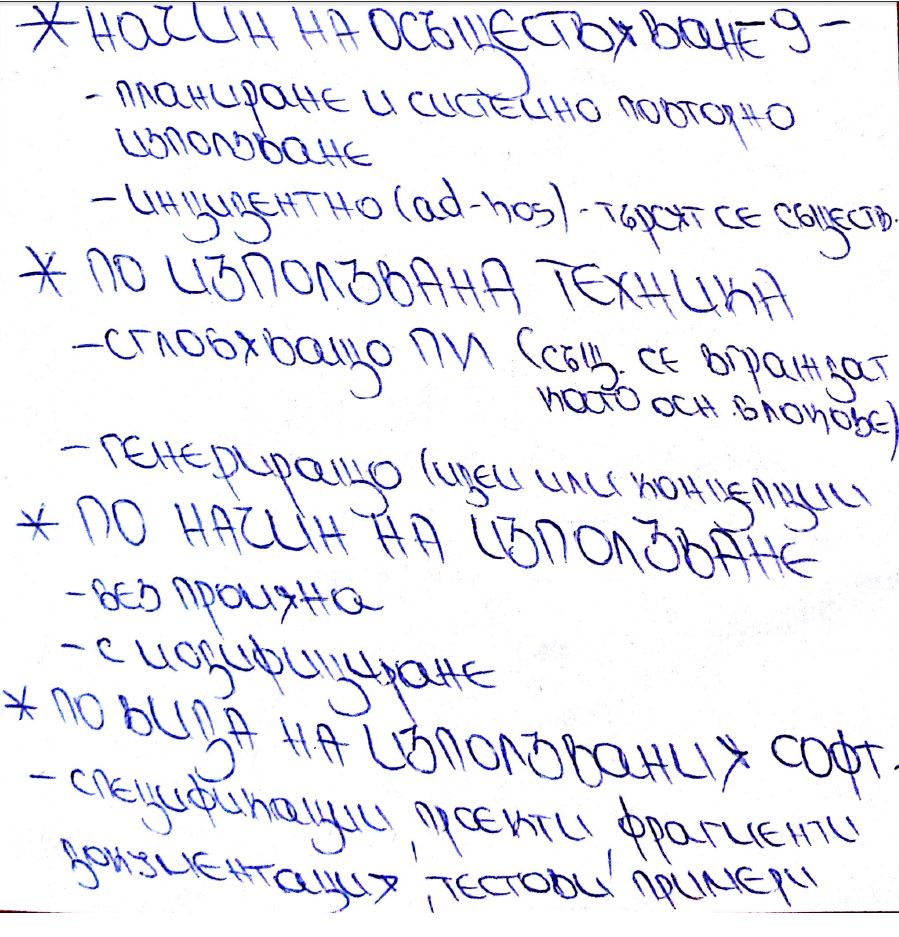 * НАЧИН НА ОСЪЩЕСТВЯВАНЕ -9-
- ПЛАНИРАНЕ И СИСТЕМНО ПОВТОРНО
ИЗПОЛЗВАНЕ
- ИНЦИДЕНТНО (ad-hos) - ТЪРСЯТ СЕ СЪЩЕСТВ.
* ПО ИЗПОЛЗВАНА ТЕХНИКА
- СГЛОБЯВАЩО ПИ (СЪЩ. СЕ ВГРАЖДАТ
КАТО ОСН. БЛОКОВЕ)
- ГЕНЕРИРАЩО (ИДЕИ ИЛИ КОНЦЕПЦИИ
* ПО НАЧИН НА ИЗПОЛЗВАНЕ
- БЕЗ ПРОМЯНА
- С МОДИФИЦИРАНЕ
* ПО ВИДА НА ИЗПОЛЗВАНИЯ СОФТ.
- СПЕЦИФИКАЦИИ, ПРОЕКТИ, ФРАГМЕНТИ
ДОКУМЕНТАЦИЯ, ТЕСТОВИ ПРИМЕРИ